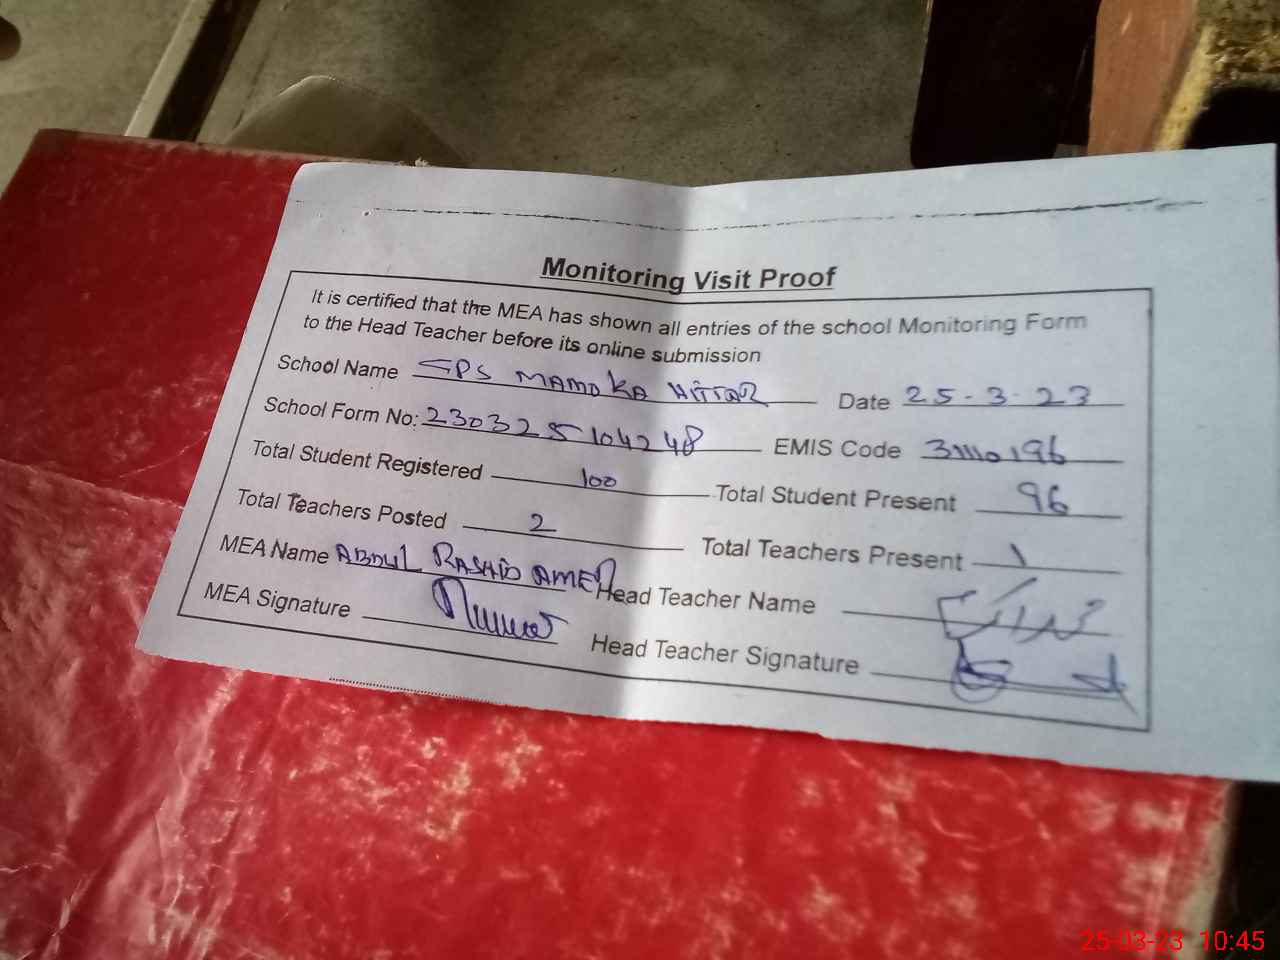 Monitoring Visit Proof
It is certified that the MEA has shown all entries of the school Monitoring Form
to the Head Teacher before its online submission
School Name GPS MAMOKA HITTAR Date 25-3-23
School Form No: 230325104248 EMIS Code 31110196
Total Student Registered 100 Total Student Present 96
Total Teachers Posted 2 Total Teachers Present 1
MEA Name ABDUL RASHID AMER Head Teacher Name
MEA Signature Head Teacher Signature
25-03-23 10:45